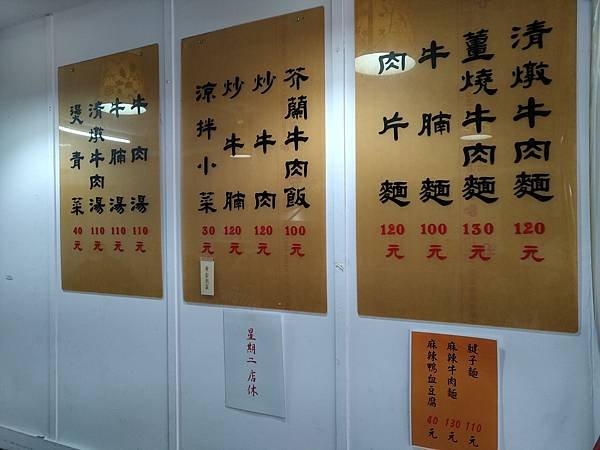 清燉牛肉麵 120元
薑燒牛肉麵 130元
牛腩麵 100元
肉片麵 120元
芥蘭牛肉飯 100元
炒牛肉 120元
炒牛腩 120元
涼拌小菜 30元
牛肉湯 110元
牛腩湯 110元
清燉牛肉湯 110元
燙青菜 40元
星期二店休
腱子麵 110元
麻辣牛肉麵 130元
麻辣鴨血豆腐 40元